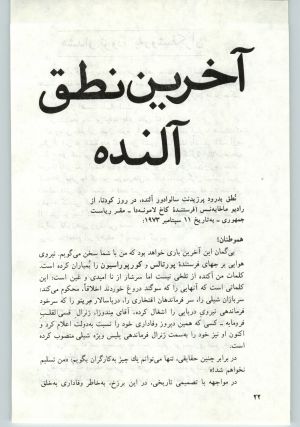 آخرین نطق
آلنده
نطق بدرود پرزیدنت سالوادور آلنده، در روز کودتا، از
رادیو ماخایه‌نس (فرستندهٔ کاخ لامونه‌دا ـ مقر ریاست
جمهوری ـ به‌تاریخ ۱۱ سپتامبر ۱۹۷۳)
هموطنان!
بی‌گمان این آخرین باری خواهد بود که من با شما سخن می‌گویم. نیروی
هوایی برجهای فرستندهٔ پورتالس و کورپوراسیون را بمباران کرده است.
کلمات من آکنده از تلخی نیست اما سرشار از نا امیدی و غبن است؛ این
کلماتی است که آنهایی را که سوگند دروغ خوردند اخلاقاً، محکوم می‌کند:
سربازان شیلی را، سر فرماندهان افتخاری را، دریاسالار مِرینو را که سرخود
فرماندهی نیروی دریایی را اشغال کرده. آقای مِندوزا، ژنرال قسی‌القلب
فرومایه ـ کسی که همین دیروز وفاداری خود را نسبت به‌دولت اعلام کرد و
اکنون او نیز خود را به‌سمت ژنرال فرماندهی پلیس ویژه شیلی منصوب کرده
است.
در برابر چنین حقایقی، تنها می‌توانم یك چیز به‌کارگران بگویم: «من تسلیم
نخواهم شد!»
در مواجهه با تصمیمی تاریخی، در این برزخ، به‌خاطر وفاداری به‌خلق
۲۲